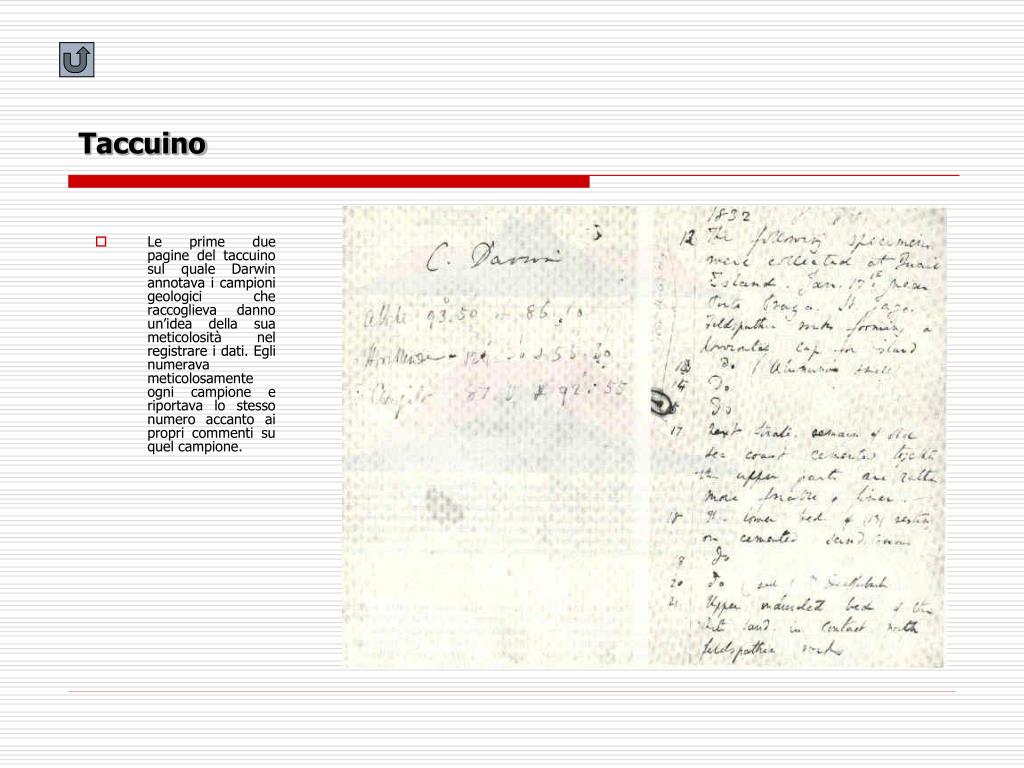 Taccuino
Le prime due
pagine del taccuino
sul quale Darwin
annotava i campioni
geologici che
raccoglieva danno
un'idea della sua
meticolosità nel
registrare i dati. Egli
numerava
meticolosamente
ogni campione e
riportava lo stesso
numero accanto ai
propri commenti su
quel campione.
C. Darwin
Albite 93.50 86.10
87 92.55
1832
12 The following specimens
were collected at Quail
Island. Jan. 17th near
Porto Praya. St Jago.
Feldspathic rocks forming a
horizontal cap for island
13 Do
14 Do
Do
17 Next strata. remain of
sea coast cemented
the upper parts are rather
more & finer.
18 The lower bed of (17) resting
on cemented sand.
Do
20 Do
21 Upper indurated bed of the
sand. in contact with
feldspathic rocks